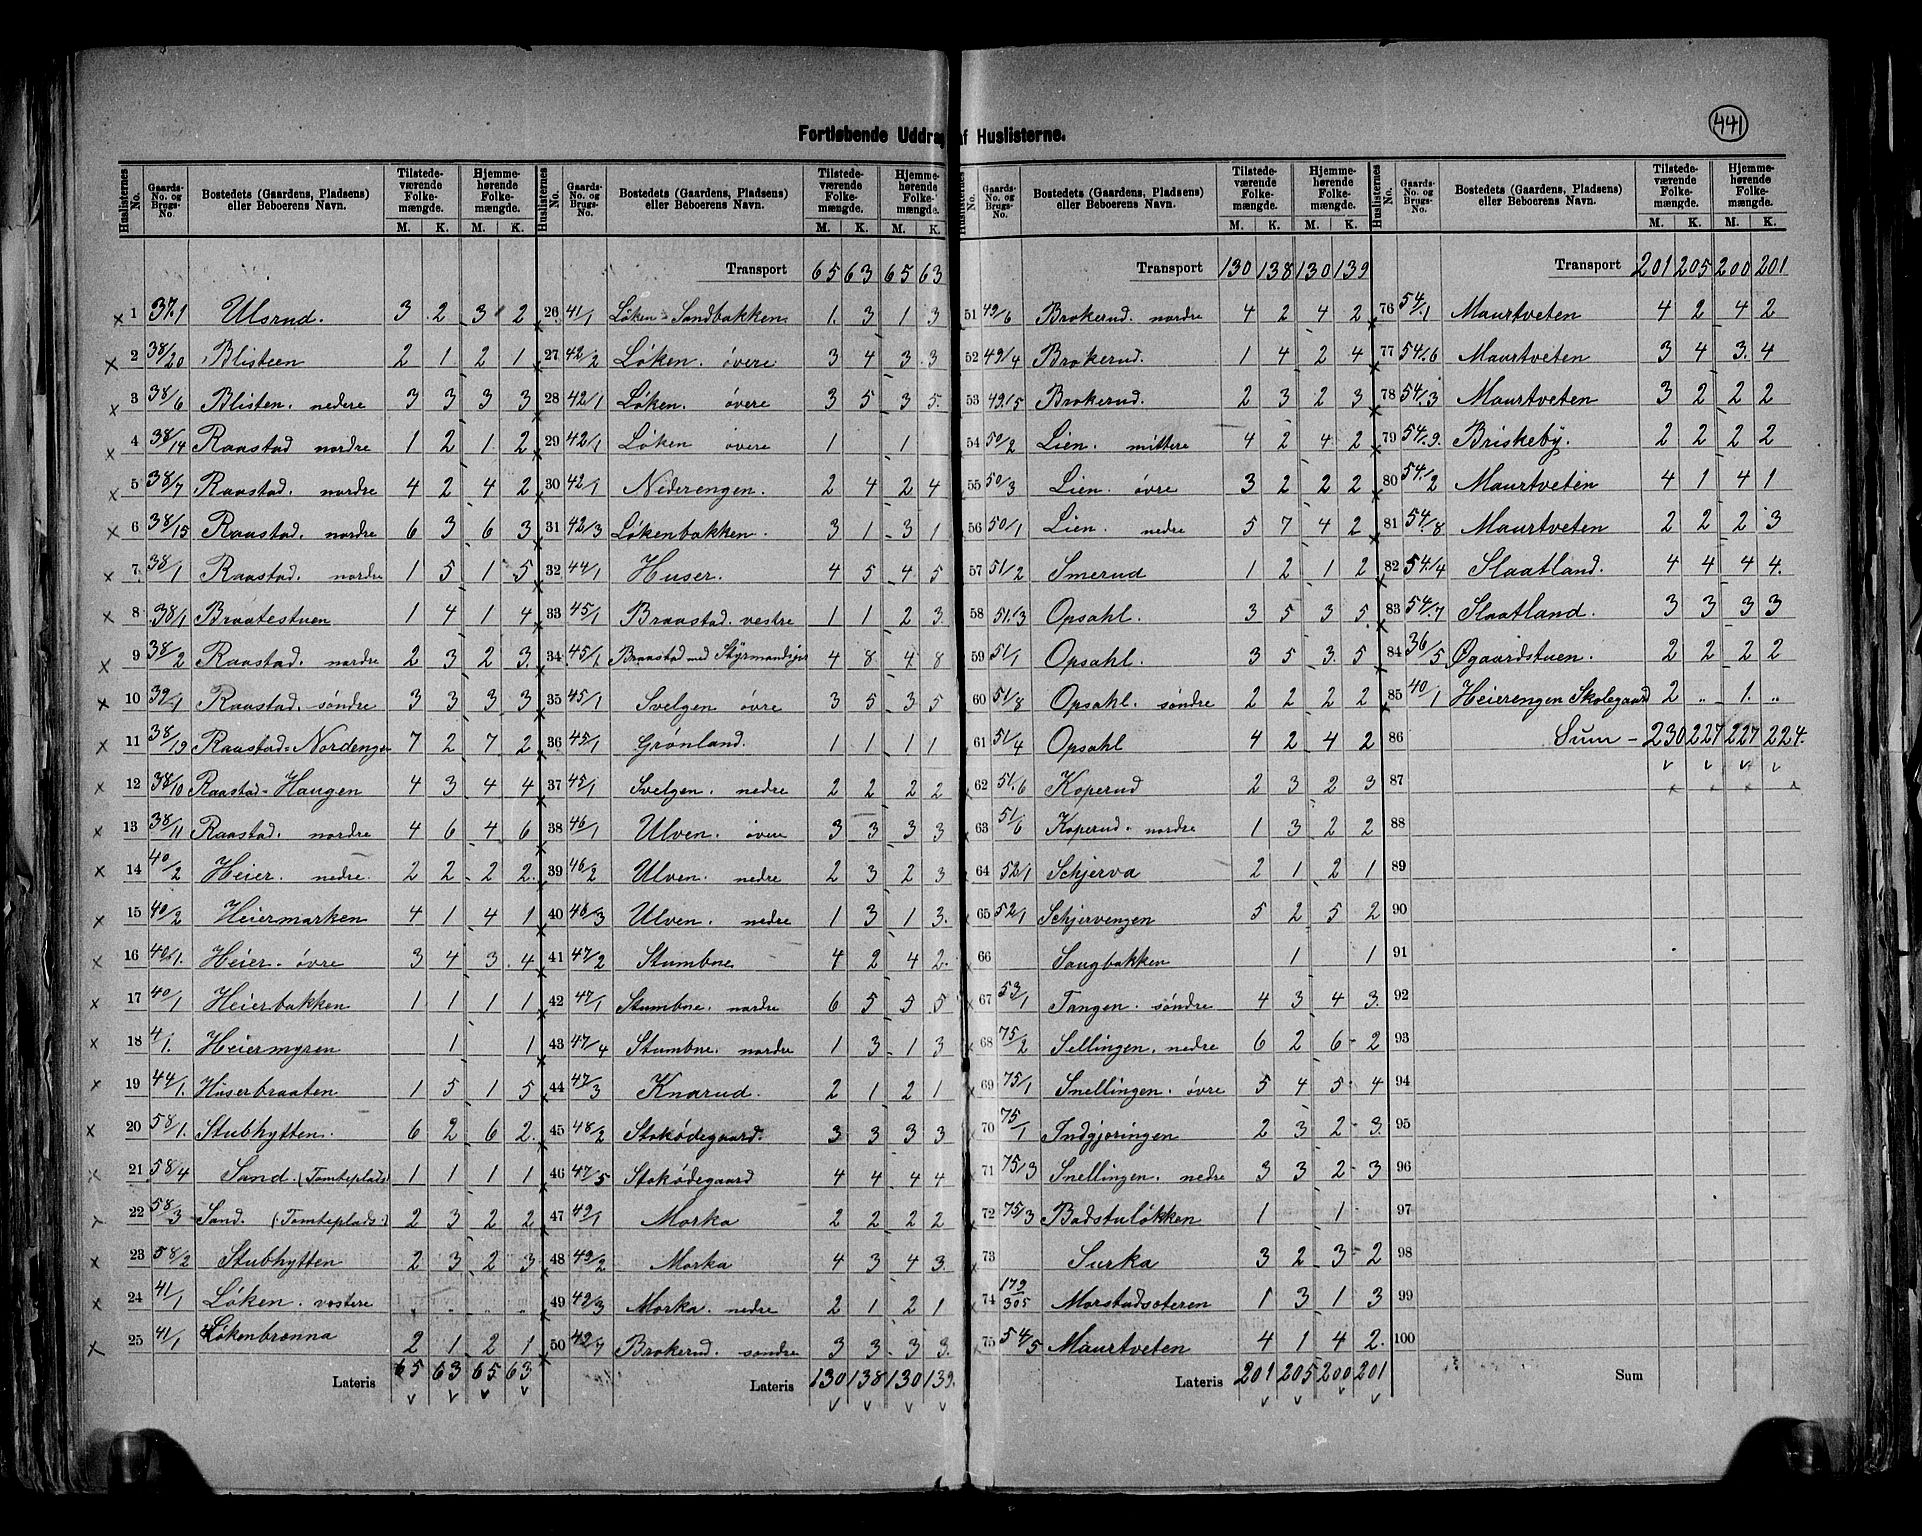 441
Fortløbende Uddrag af Huslisterne.
Huslisternes No. | Gaards-No. og Brugs-No. | Bostedets (Gaardens, Pladsens) eller Beboerens Navn. | Tilstedeværende Folkemængde. M. K. | Hjemmehørende Folkemængde. M. K.
1 37.1 Ulsrud. 3 2 3 2
2 38/20 Blisteen 2 1 2 1
3 38/6 Blisten. nedere 3 3 3 3
4 38/14 Raastad nordre 1 2 1 2
5 38/7 Raastad. nordre 4 2 4 2
6 38/15 Raastad. nordre 6 3 6 3
7 38/1 Raastad. nordre 1 5 1 5
8 38/1 Braatestuen 1 4 1 4
9 38/2 Raastad. nordre 2 3 2 3.
10 39/1 Raastad. søndre 3 3 3 3
11 38/19 Raastad=Nordengen 7 2 7 2
12 38/10 Raastad=Haugen 4 3 4 4
13 38/11 Raastad. nordre 4 6 4 6
14 40/2 Heier. nedre. 2 2 2 2.
15 40/2 Heiermarken 4 1 4 1
16 40/1. Heier. øvre 3 4 3 4
17 40/1 Heierbakken 1 1 1 1
18 4/1. Heiermyren 1 1
19 44/1. Huserbraaten 1 5 1 5
20 58/1. Stubhytten. 6 2 6 2.
21 58/4 Sand. (Tomteplads) 1 1 1 1
22 58/3 Sand. (Tomteplads.) 2 3 2 2
23 58/2 Stubhytten 2 3 2 3
24 41/1 Løken. vestere . . . .
25 41/1 Løkenbrænna 2 1 2 1
Lateris 65 63 65 63
Transport 65 63 65 63
26 41/1 Løken=Sandbakken 1. 3 1 3
27 42/2 Løken. övere 3 4 3 3
28 42/1 Løken. övere 3 5 3 5.
29 42/1 Løken övere 1 1
30 42/1 Nederengen. 2 4 2 4
31 42/3 Løkenbakken. 3 1 3 1
32 44/1 Huser. 4 5 4 5
33 45/1 Braastad. vestre 1 1 2 3.
34 45/1 Braastad med 4 8 4 8
35 45/1 Svelgen övre 3 5 3 5
36 45/1 Grønland. 1 1 1 1
37 45/1 Svelgen. nedre 2 2 2 2
38 46/1 Ulven. övere 3 3 3 3
39 46/2 Ulven. nedre 2 3 2 3
40 46/3 Ulven. nedre 1 3 1 3.
41 47/2 Stumbne 4 2 4 2.
42 47/1 Stumbne. nordre 6 5 5 5
43 47/4 Stumbne. nordre 1 3 1 3
44 47/3 Knarud. 2 1 2 1
45 48/2 Stoködegaard. 3 3 3 3
46 47/5 Stoködegaard 4 4 4 4
47 49/1 Morka 2 2 2 2
48 49/2 Morka 4 3 4 3.
49 49/3 Morka. nedre 2 1 2 1
50 49/7 Brokerud. søndre 3 3 3 3.
Lateris 130 138 130 139.
Transport 130 138 130 139
51 49/6 Brokerud. nordre 4 2 4 2
52 49/4 Brokerud. 1 4 2 4
53 49.15 Brokerud. 2 3 2 3
54 50/2 Lien. mittere 4 2 4 2
55 50/3 Lien. övre 3 2 2 2
56 50/1 Lien. nedre 5 7 4 2
57 51/2 Smerud 1 2 1 2
58 51.3 Opsahl. 3 5 3 5.
59 51/1 Opsahl. 3 5 3. 5
60 51/8 Opsahl. søndre 2 2 2 2
61 51/4 Opsahl 4 2 4 2
62 51.6 Koperud 2 3 2 3
63 51/6 Koperud. nordre 1 3 2 2
64 52/1 Schjerva 2 1 2 1
65 52/1 Schjervengen 5 2 5 2
66 Saugbakken 1 1
67 53/1 Tangen. søndre 4 3 4 3.
68 75/2 Sellingen. nedre 6 2 6 2
69 75/1 Snellingen. övre 5 4 5 4
70 75/1 Indgjæringen 2 3 2 3.
71 75/3 Snellingen. nedre 3 3 2 3
72 75/3 Badstuløkken 1 1
73 Surka 3 2 3 2
74 179/305 Morstadsæteren 1 3 1 3
75 54/5 Maurtveten 4 1 4 2.
Lateris 201 205 200 201
Transport 201 205 200 201
76 54/1 Maurtveten 4 2 4 2
77 54.6 Maurtveten 3 4 3. 4
78 54/3 Maurtveten 3 2 2 2
79 54.9. Briskeby. 2 2 2 2
80 54.2 Maurtveten 4 1 4 1
81 54/8 Maurtveten 2 2 2 3
82 54./4 Slaatland. 4 4 4 4.
83 54./7 Slaatland. 3 3 3 3
84 36/5 Øgaardstuen. 2 2 2 2
85 40/1 Heierengen Skolegaard 2 „ 1. „
86 Sum – 230 227 227 224.
87
88
89
90
91
92
93
94
95
96
97
98
99
100
Sum